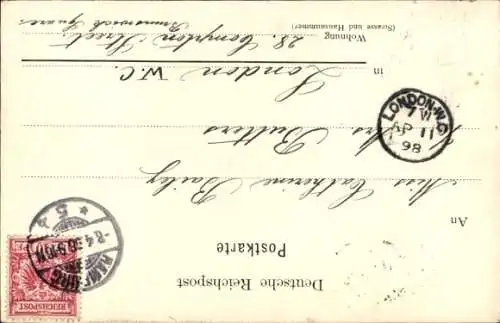 Deutsche Reichspost
Postkarte
An
Miss Catherine Bailey
Mrs Butters
in London W.C.
Wohnung 28. Compton Street
(Strasse und Hausnummer) Brunswick Square
LONDON·W.C
7 VI
AP 11
98
REICHSPOST